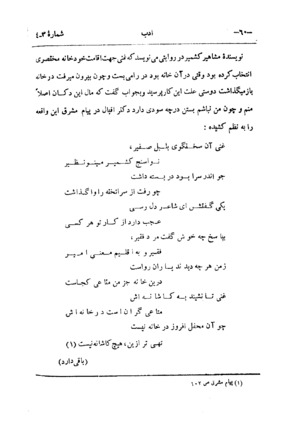 -٦٠- ادب شمارهٔ ٣ـ٤
نویسندهٔ مشاهیر کشمیر در روایتی می نویسد که غنی جهت اقامت خود خانه مختصری
انتخاب کرده بود وقتی در آن خانه بود در را می بست و چون بیرون میرفت در خانه
باز میگذاشت دوستی علت این کار پرسید و بجواب گفت که مال این دکان اصلاً
منم و چون من نباشم بستن درچه سودی دارد دکتر اقبال در پیام مشرق این واقعه
را به نظم کشیده :
غنی آن سخنگوی بلبل صفیر،
نواسنج کشمیر مینونظیر
چو اندر سرا بود در بسته داشت
چو رفت از سرا تخته را واگذاشت
یکی گفتش ای شاعر دل رسی
عجب دارد از کار تو هر کسی
بپا سخ چه خوش گفت مرد فقیر،
فقیر و به اقلیم معنی امیر
زمن هر چه دیدند یاران رواست
درین خانه جز من متاعی کجاست
غنی تا نشیند به کاشانه اش
متاعی گران است در خانه اش
چو آن محفل افروز در خانه نیست
تهی تر ازین، هیچ کاشانه نیست (١)
(باقی دارد)
(١) پیام مشرق ص ١٠٢